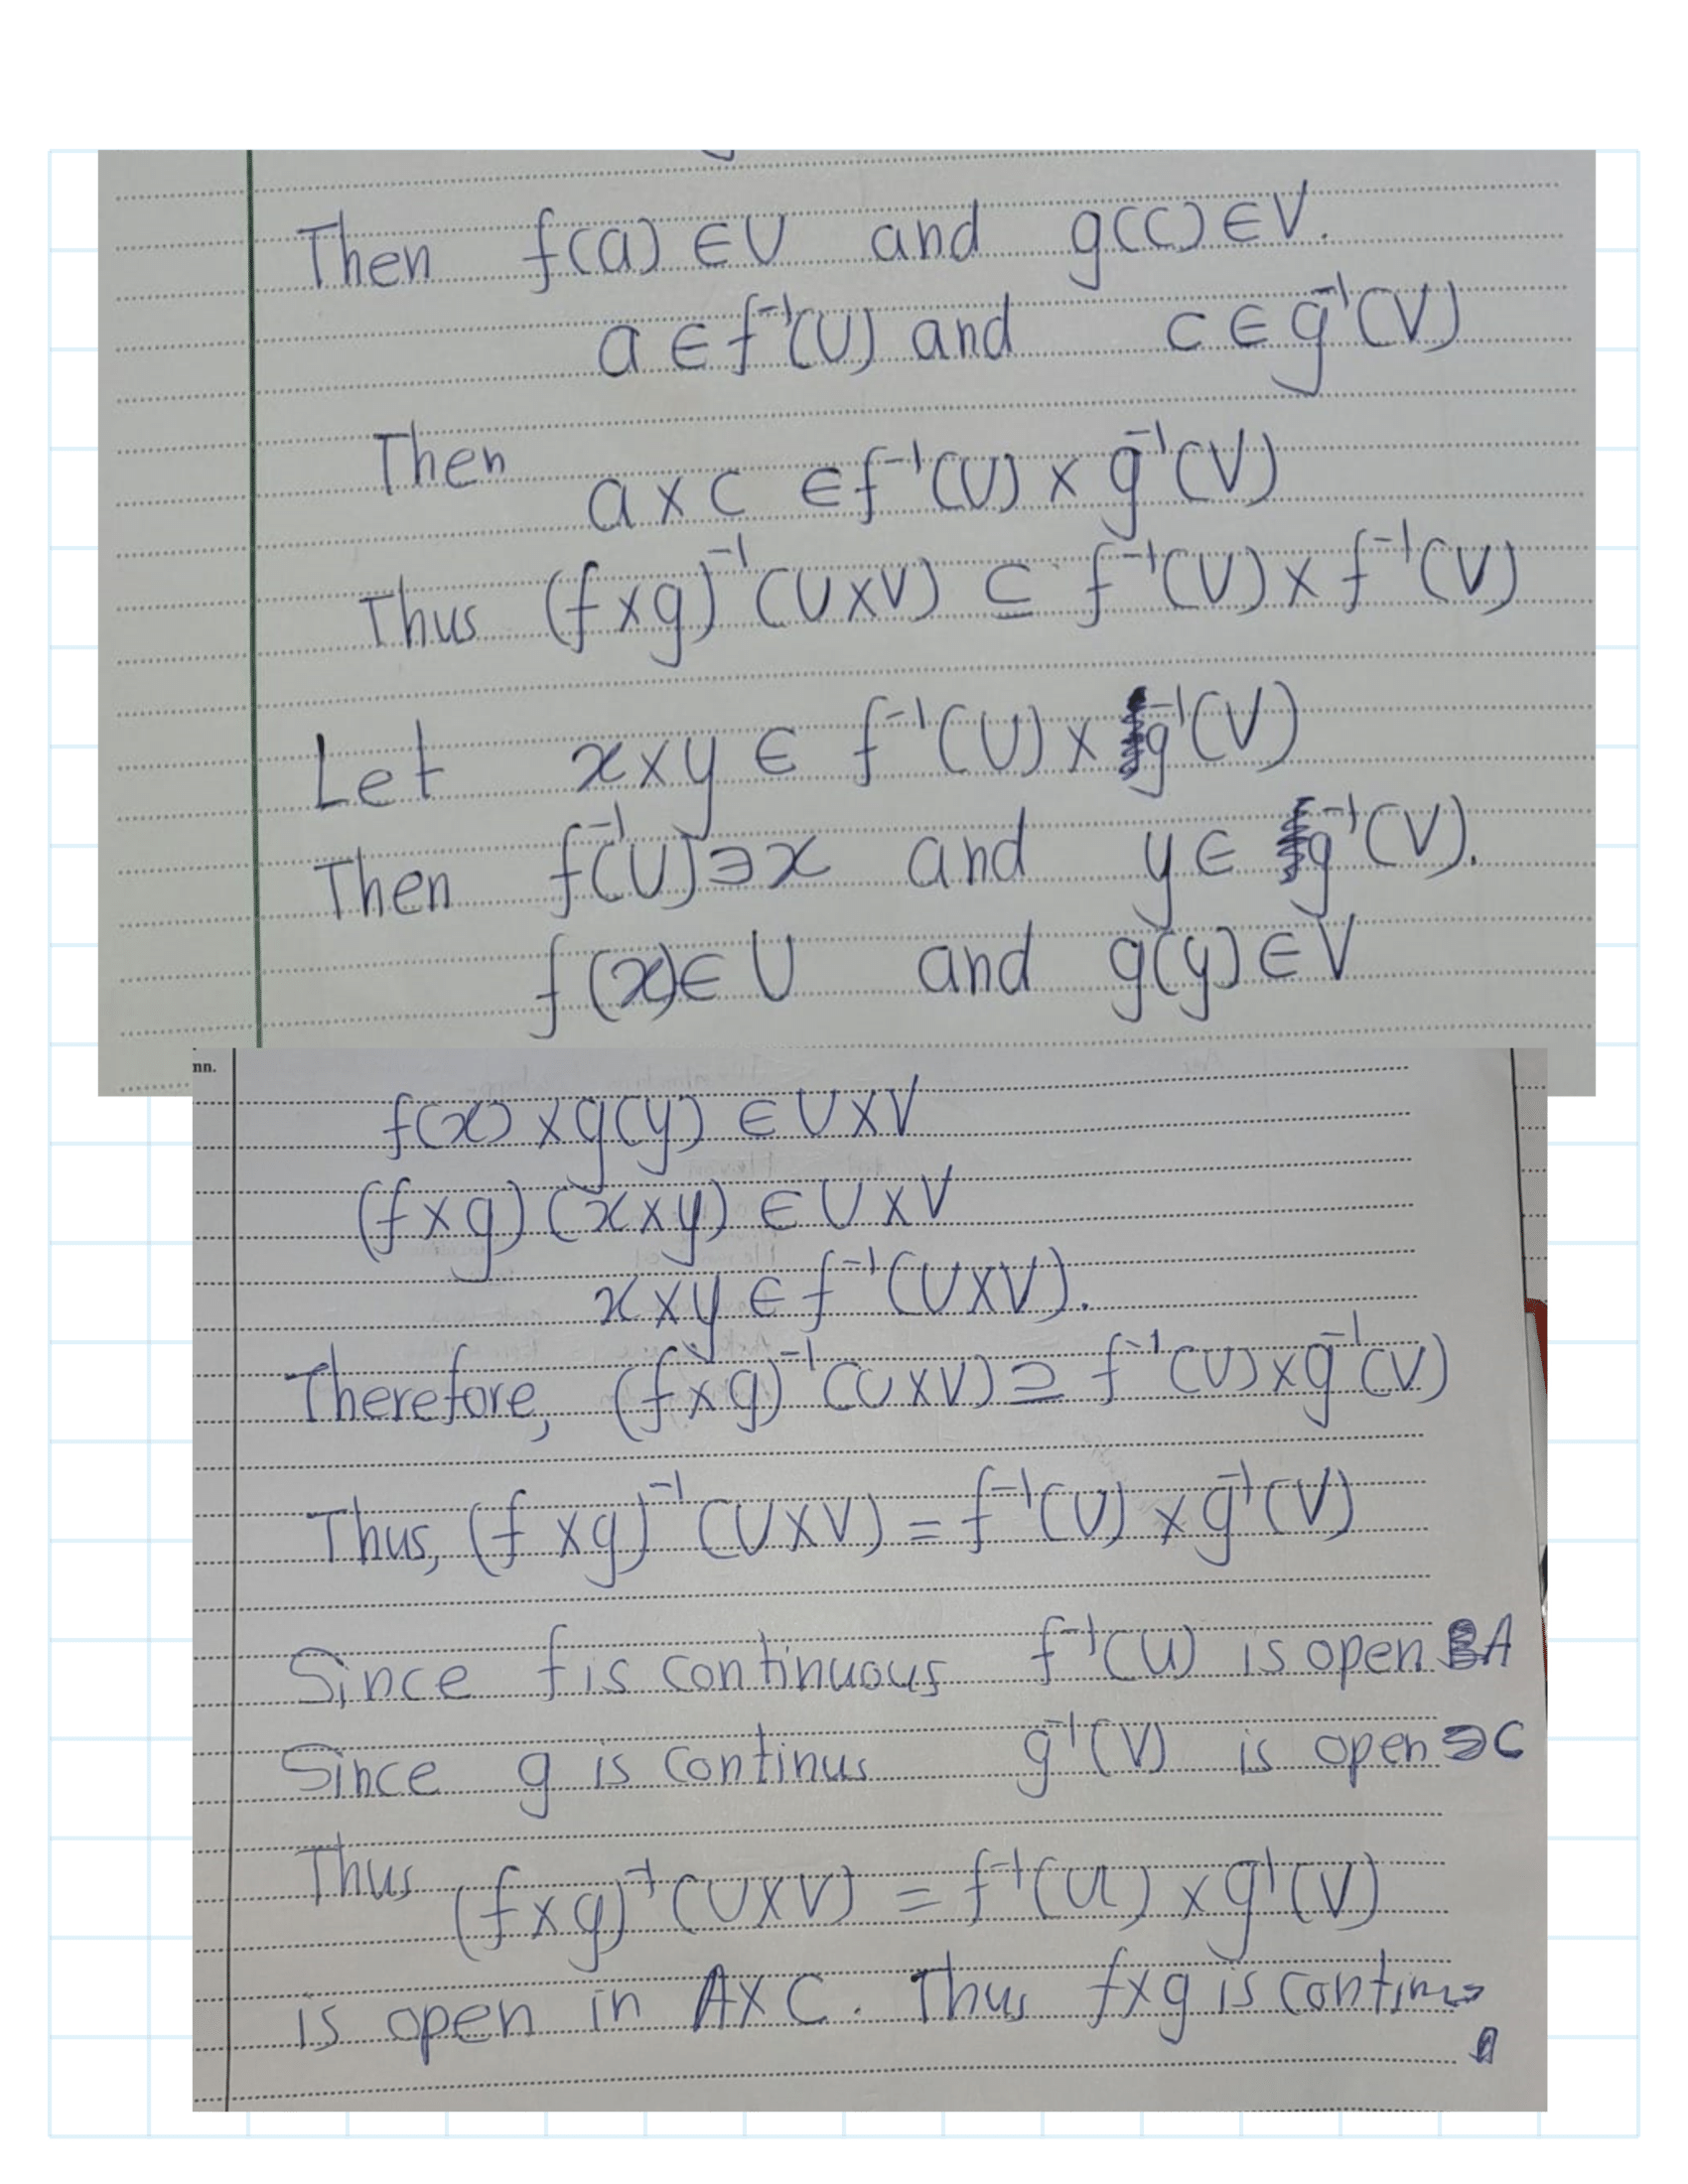 Then f(a) ∈ U and g(c) ∈ V.
a ∈ f⁻¹(U) and c ∈ g⁻¹(V)
Then a × c ∈ f⁻¹(U) × g⁻¹(V)
Thus (f × g)⁻¹(U × V) ⊂ f⁻¹(U) × f⁻¹(V)
Let x × y ∈ f⁻¹(U) × g⁻¹(V)
Then f⁻¹(U) ∋ x and y ∈ g⁻¹(V).
f(x) ∈ U and g(y) ∈ V
nn.
f(x) × g(y) ∈ U × V
(f × g)(x × y) ∈ U × V
x × y ∈ f⁻¹(U × V).
Therefore, (f × g)⁻¹(U × V) ⊇ f⁻¹(U) × g⁻¹(V)
Thus, (f × g)⁻¹(U × V) = f⁻¹(U) × g⁻¹(V)
Since f is continuous f⁻¹(U) is open A
Since g is continus g⁻¹(V) is open C
Thus (f × g)⁻¹(U × V) = f⁻¹(U) × g⁻¹(V)
is open in A × C. Thus f × g is